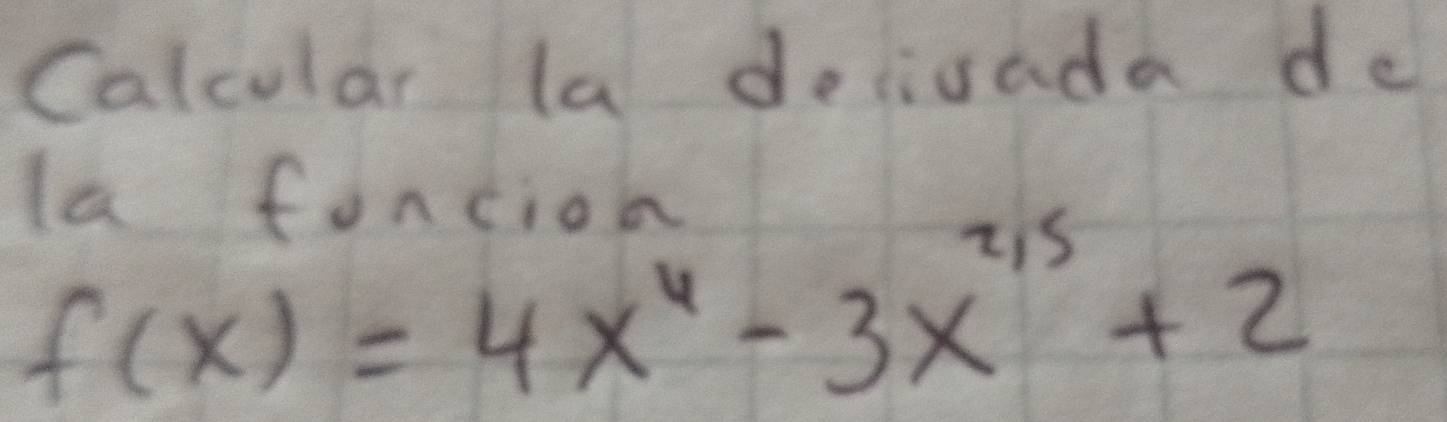 Calcular la derivada de
la funcion
f(x) = 4x⁴ - 3x²,⁵ + 2